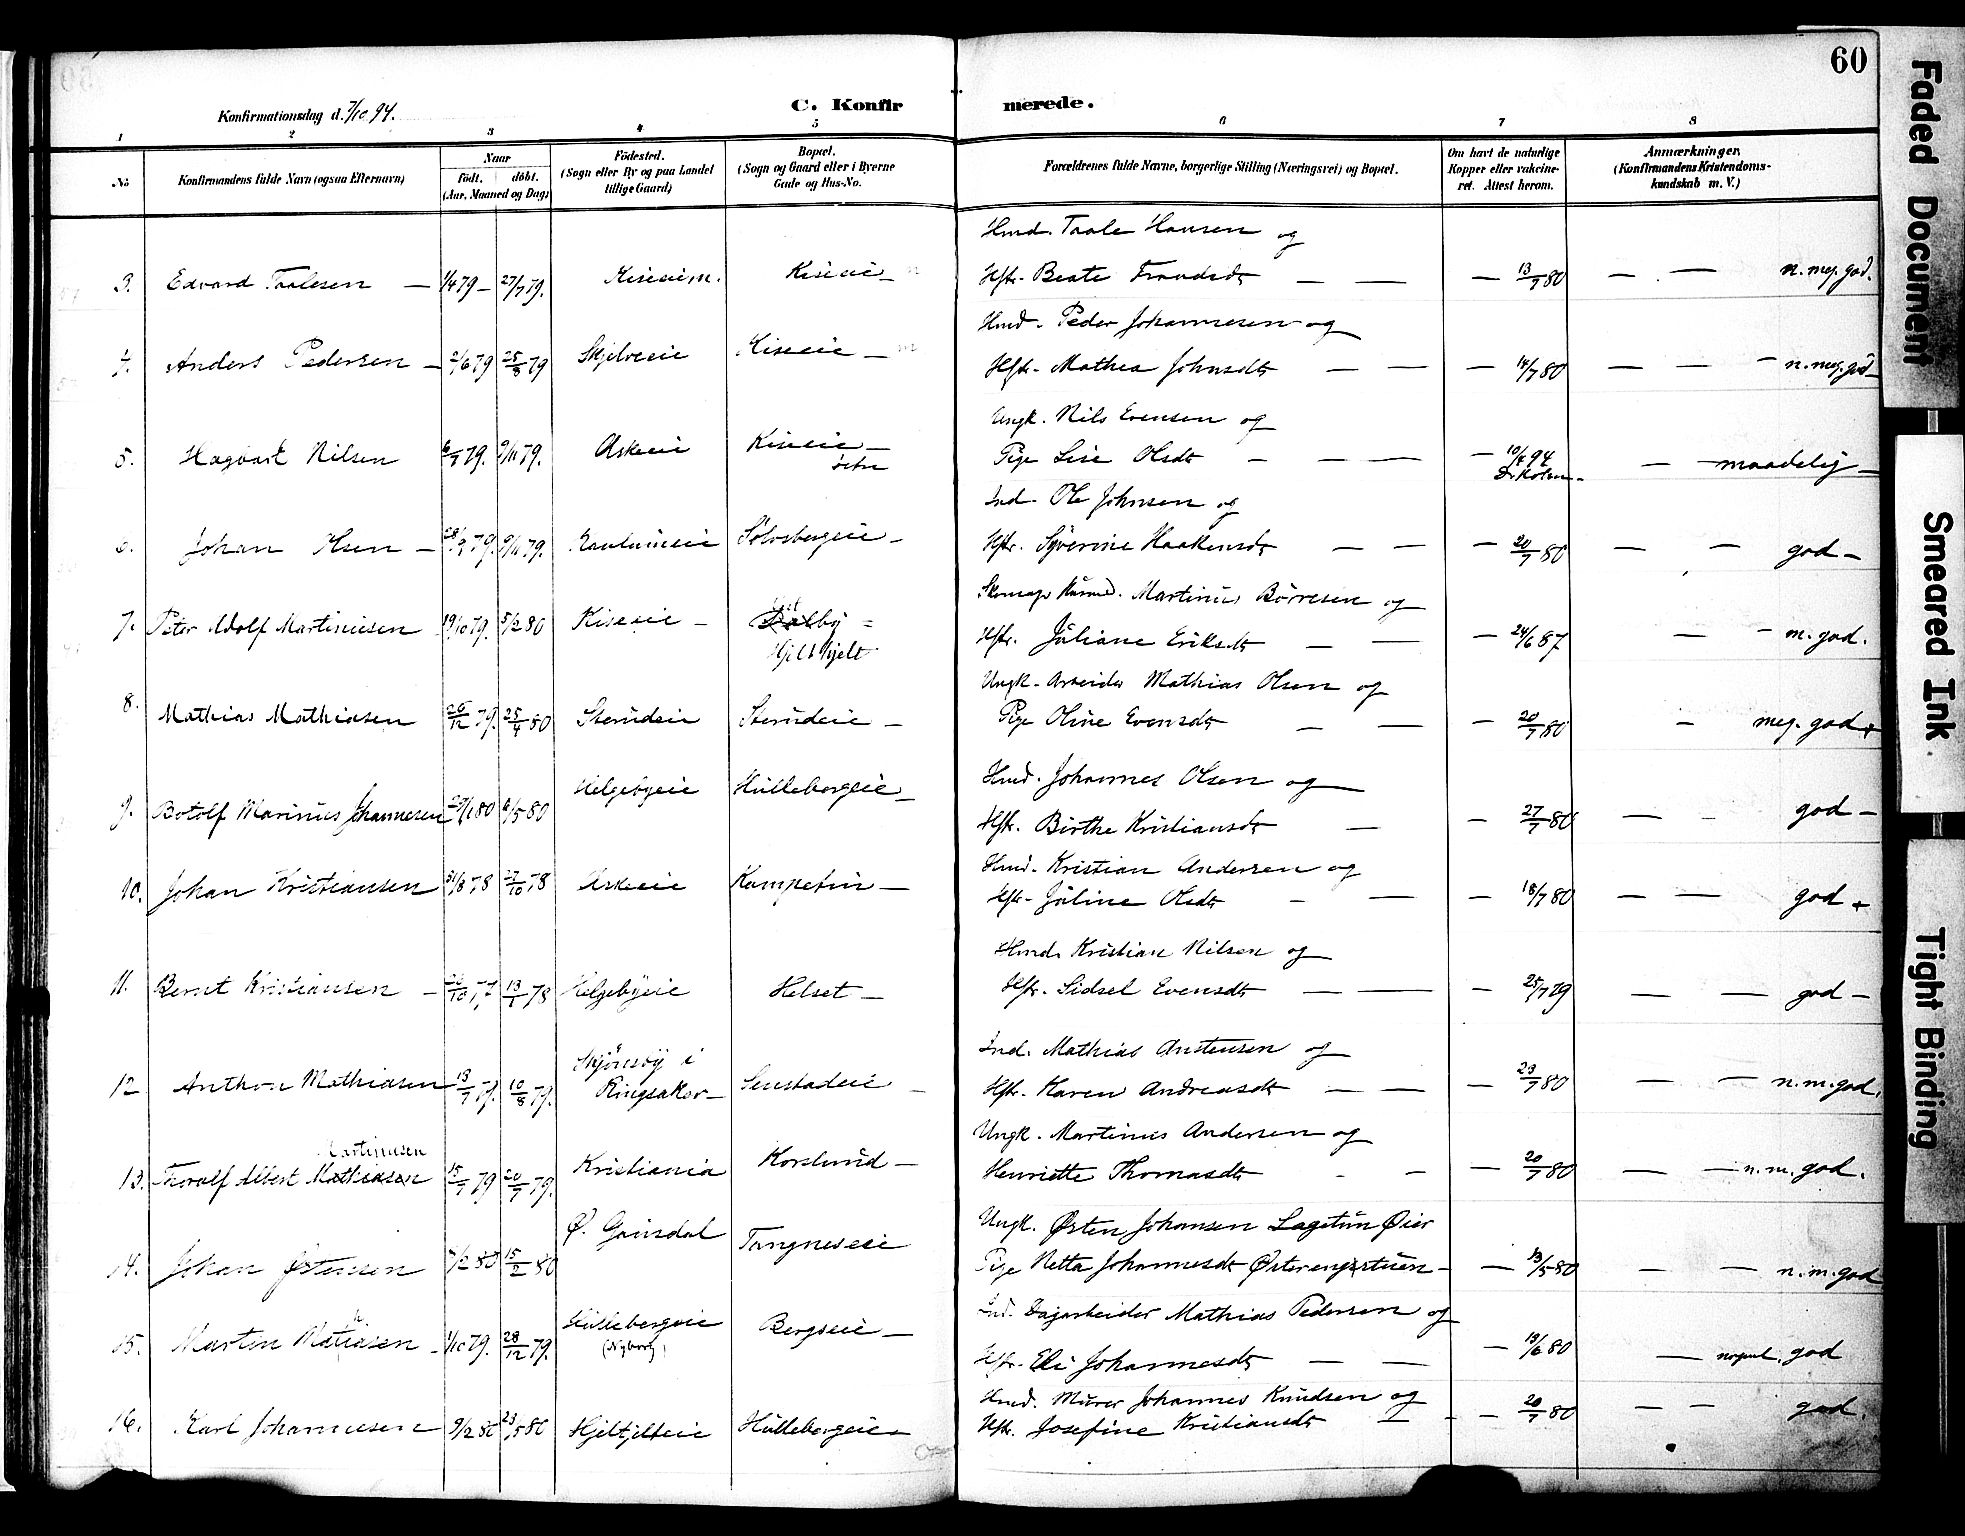 60
Konfirmationsdag d. 7/10 94.
C. Konfirmerede.
1 2 3 4 5 6 7 8
No
Konfirmandens fulde Navn (ogsaa Efternavn)
Naar
født. døbt.
(Aar, Maaned og Dag)
Fødested.
(Sogn eller By og paa Landet
tillige Gaard)
Bopæl.
(Sogn og Gaard eller i Byerne
Gade og Hus-No.
Forældrenes fulde Navne, borgerlige Stilling (Næringsvei) og Bopæl.
Om havt de naturlige
Kopper eller vaccine-
ret. Attest herom.
Anmærkninger,
(Konfirmandens Kristendoms-
kundskab m. V.)
Hmd. Taale Hansen og
3. Edvard Taalesen — 1/4 79 — 27/7 79. Kiseeie — Hstr. Beate — — 13/7 80 — — n. meg. god.
Hmd. Peder Johannesen og
4. Anders Pedersen — 2/6 79 25/8 79 Skjelveeie Kiseeie — Hstr. Mathea Johnsdt — — — 14/7 80 — — n. meg. god —
Ungk. Nils Evensen og
5. Hagbart Nilsen 6/7 79. 9/11 79. Askeeie Kiseeie — Pige Lise Olsdt — — — 10/4 94 — maadelig —
Ind. Ole Johnsen og
6. Johan Olsen — 28/9 79. 9/11 79. Sølvsbergeie — Hstr. Syverine Haakensdt — — — 20/7 80 — — god —
Skomager Martinus Børresen og
7. Peter Adolf Martiniusen 19/10 79. 5/2 80 Kiseeie — Hjelthjelt Hstr. Juliane Eriksdt — — — 24/6 87 — — m. god.
Ungk. Arbeider Mathias Olsen og
8. Mathias Mathiasen 26/12 79. 25/4 80 Sterudeie Sterudeie — Pige Oline Evensdt — — — 20/7 80 — meg. god +
Hmd. Johannes Olsen og
9. Botolf Marinus Johannesen 29/1 80 6/5 80 Helgebyeie Hulleborgeie — Hstr. Birthe Kristiansdt — — 27/7 80 — — god —
Hmd. Kristian Andersen og
10. Johan Kristiansen 31/8 78 27/10 78 Askeeie — Hstr. Juline Olsdt — — — 18/7 80 — — god +
Hmd. Kristian Nilsen og
11. Bernt Kristiansen — 26/10 77 13/1 78 Helgebyeie Helset — Hstr. Sidsel Evensdt — — — 25/7 79 — — god —
Ind. Mathias Austensen og
12 Anthon Mathiasen 13/7 79. 10/8 79. i Ringsaker — Senstadeie — Hstr. Karen Andreasdt — — — 23/7 80 — — n. m. god.
Ungk. Martinus Andersen og
Martinusen
13. Thoralf Albert Mathiasen 15/7 79 20/7 79. Kristiania Korslund — Henriette Thomasdt — — — 20/7 80 — — n. m. god.
Ungk. Østen Johansen Øier
14. Johan Østensen 7/2 80 15/2 80 Ø. Gausdal Tangneseie Pige Netta Johannesdt — — 13/5 80 — — n. m. god
Ind. Dagarbeider Mathias Pedersen og
15. Martin Mathiasen — 1/10 79. 28/12 79. Hullebergeie (Nyborg) Bergseie — Hstr. Eli Johannesdt — — — 19/6 80 — god
Hmd. Murer Johannes Knudsen og
16. Karl Johannesen 9/2 80 23/5 80 Hjeltjelteie Hulleborgeie — Hstr. Josefine Kristiansdt — — — 20/7 80 — — god.
Faded Document
Smeared Ink
Tight Binding